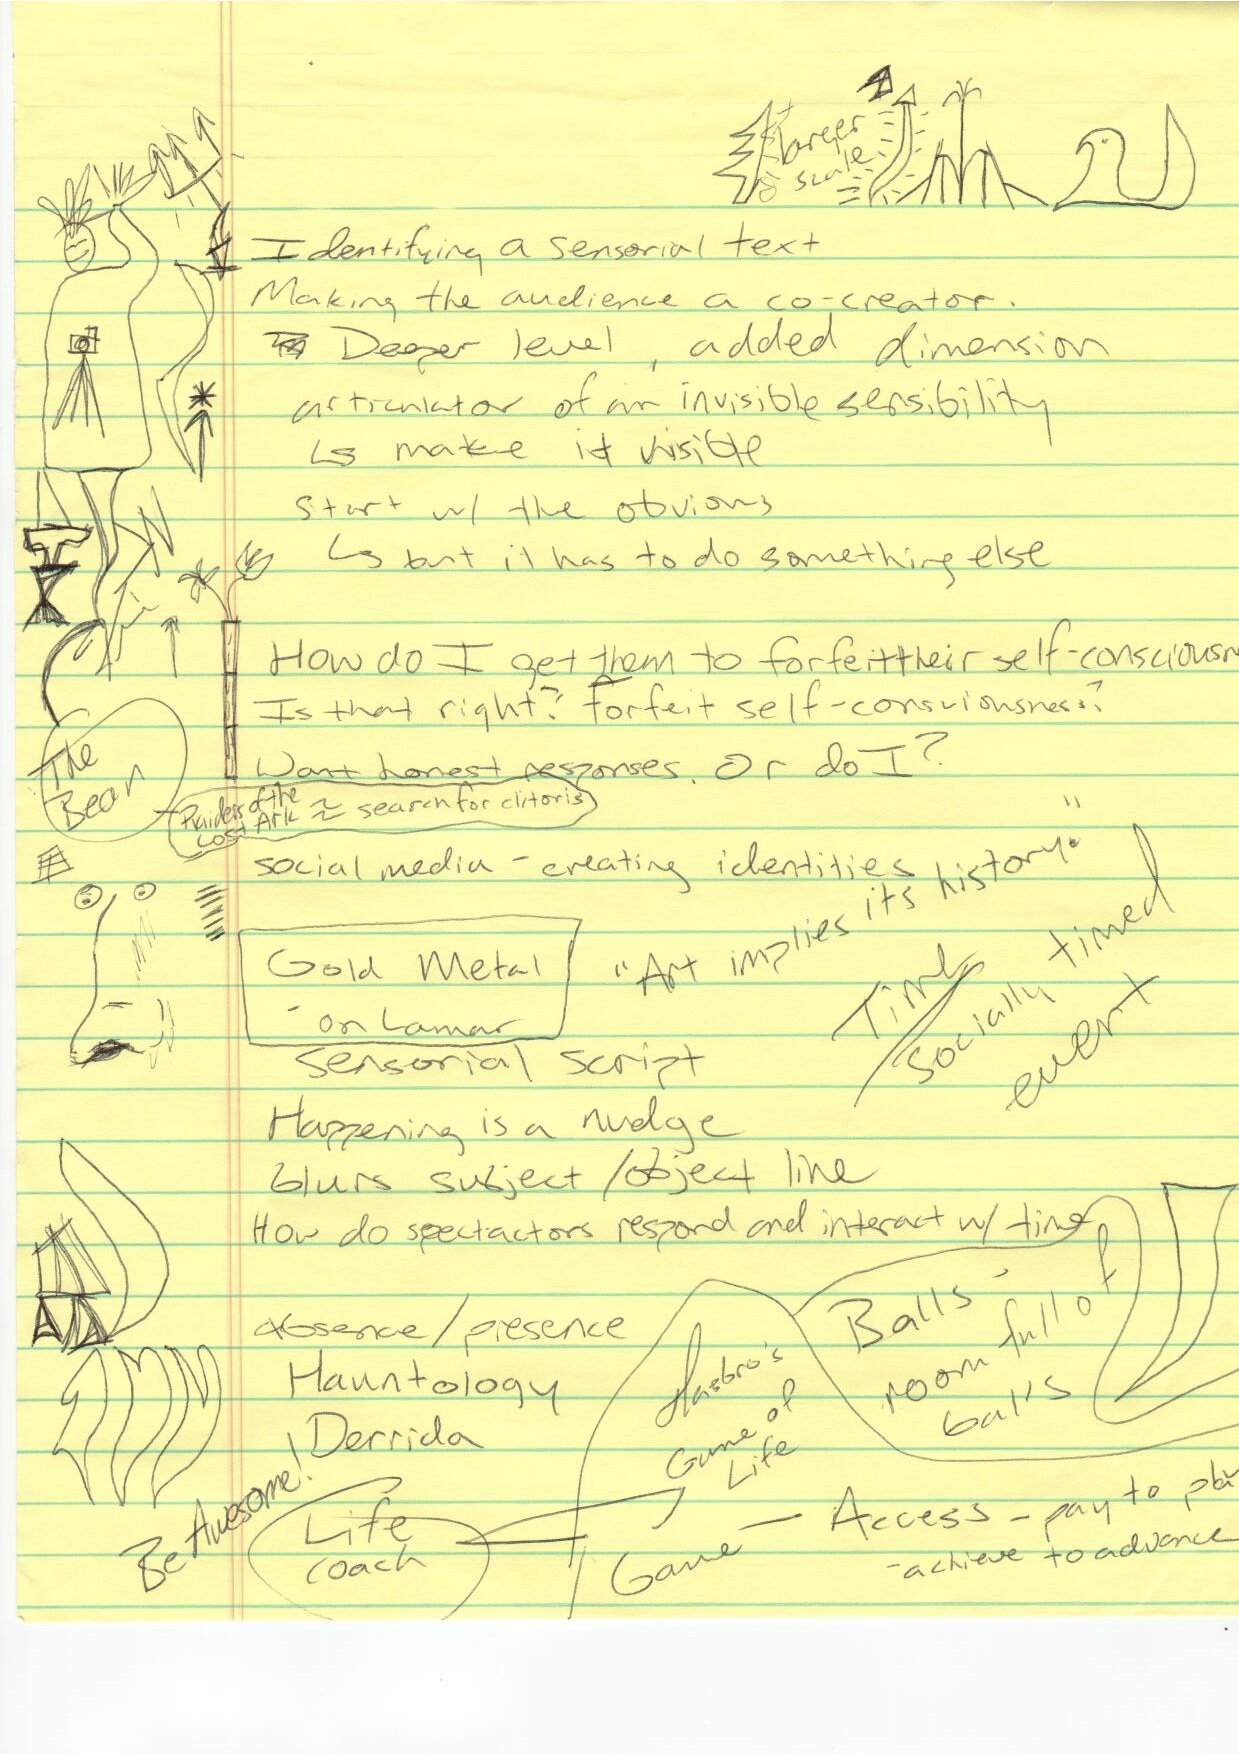 larger
scale
Identifying a sensorial text
Making the audience a co-creator.
Deeper level, added dimension
articulator of an invisible sensibility
↳ make it visible
start w/ the obvious
↳ but it has to do something else
How do I get them to forfeit their self-consciousn
Is that right? Forfeit self-consviousness?
Want honest responses. Or do I?
The
Bean
Raiders of the
Lost Ark ≈ search for clitoris
social media - creating identities
"Art implies its history."
Gold Metal
- on Lamar
Time
socially timed
event
sensorial script
Happening is a nudge
blurs subject/object line
How do spectactors respond and interact w/ time
absence/presence
Hauntology
Derrida
Balls -
room full of
balls
Hasbro's
Game of
Life
Be Awesome!
Life
coach
Game - Access - pay to play
- achieve to advance